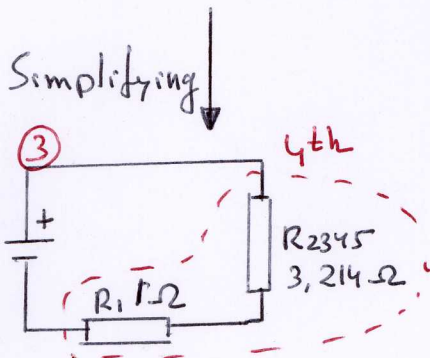 Simplifying
3
4th
+
R2345
3,214 Ω
R1 1Ω